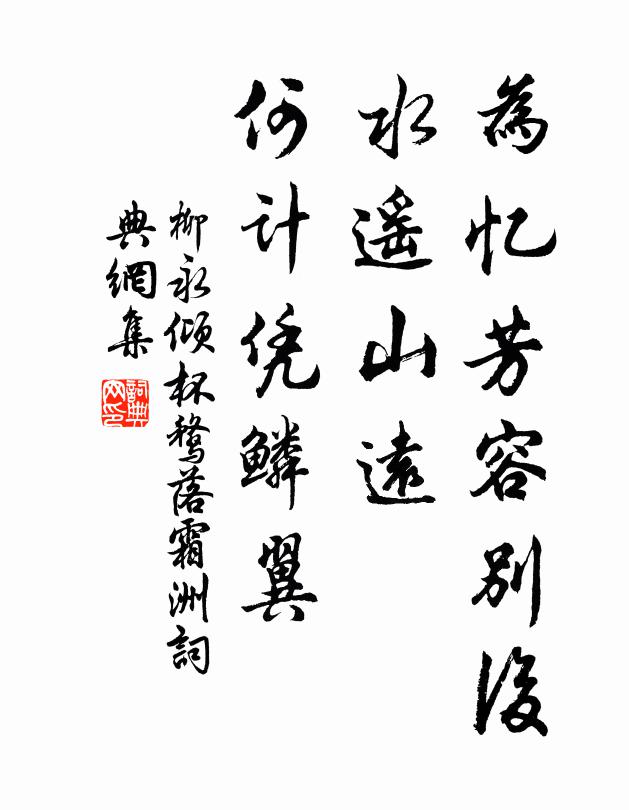 為忆芳容別後
水遥山遠
何计凭鳞翼
柳永倾杯鹜落霜洲詞
典網集
詞典
网印